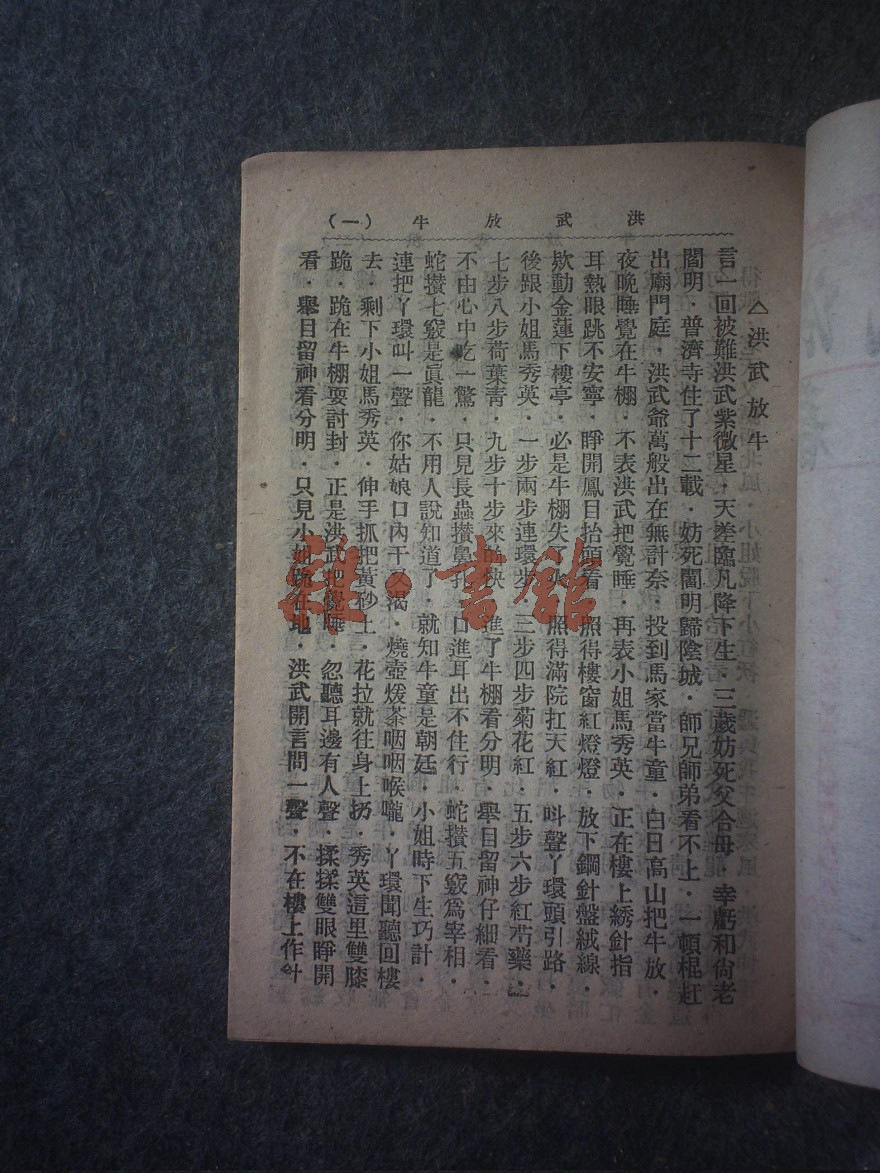 洪武放牛（一）
△洪武放牛
言一回被難洪武紫微星．天差臨凡降下生．三歲妨死父合母．幸虧和尙老
閻明．普濟寺住了十二載．妨死閻明歸陰城．師兄師弟看不上．一頓棍赶
出廟門庭．洪武爺萬般出在無計奈．投到馬家當牛童．白日高山把牛放．
夜晚睡覺在牛棚．不表洪武把覺睡．再表小姐馬秀英．正在樓上綉針指
耳熱眼跳不安寧．睜開鳳目抬頭看．照得樓窗紅燈燈．放下鋼針盤絨線．
欸動金蓮下樓亭．必是牛棚失了火．照得滿院扛天紅．呌聲丫環頭引路．
後跟小姐馬秀英．一步兩步連環步．三步四步菊花紅．五步六步紅芍藥．
七步八步荷葉青．九步十步來的快．進了牛棚看分明．舉目留神仔細看．
不由心中吃一驚．只見長蟲攅鼻孔．口進耳出不住行．蛇攅五竅爲宰相．
蛇攅七竅是眞龍．不用人說知道了．就知牛童是朝廷．小姐時下生巧計．
連把丫環叫一聲．你姑娘口內干又渴．燒壺煖茶咽咽喉嚨．丫環聞聽回樓
去．剩下小姐馬秀英．伸手抓把黃砂土．花拉就往身上扔．秀英這里雙膝
跪．跪在牛棚要討封．正是洪武把覺睡．忽聽耳邊有人聲．揉揉雙眼睜開
看．舉目留神看分明．只見小姐跪在地．洪武開言問一聲．不在樓上作針
雜·書館